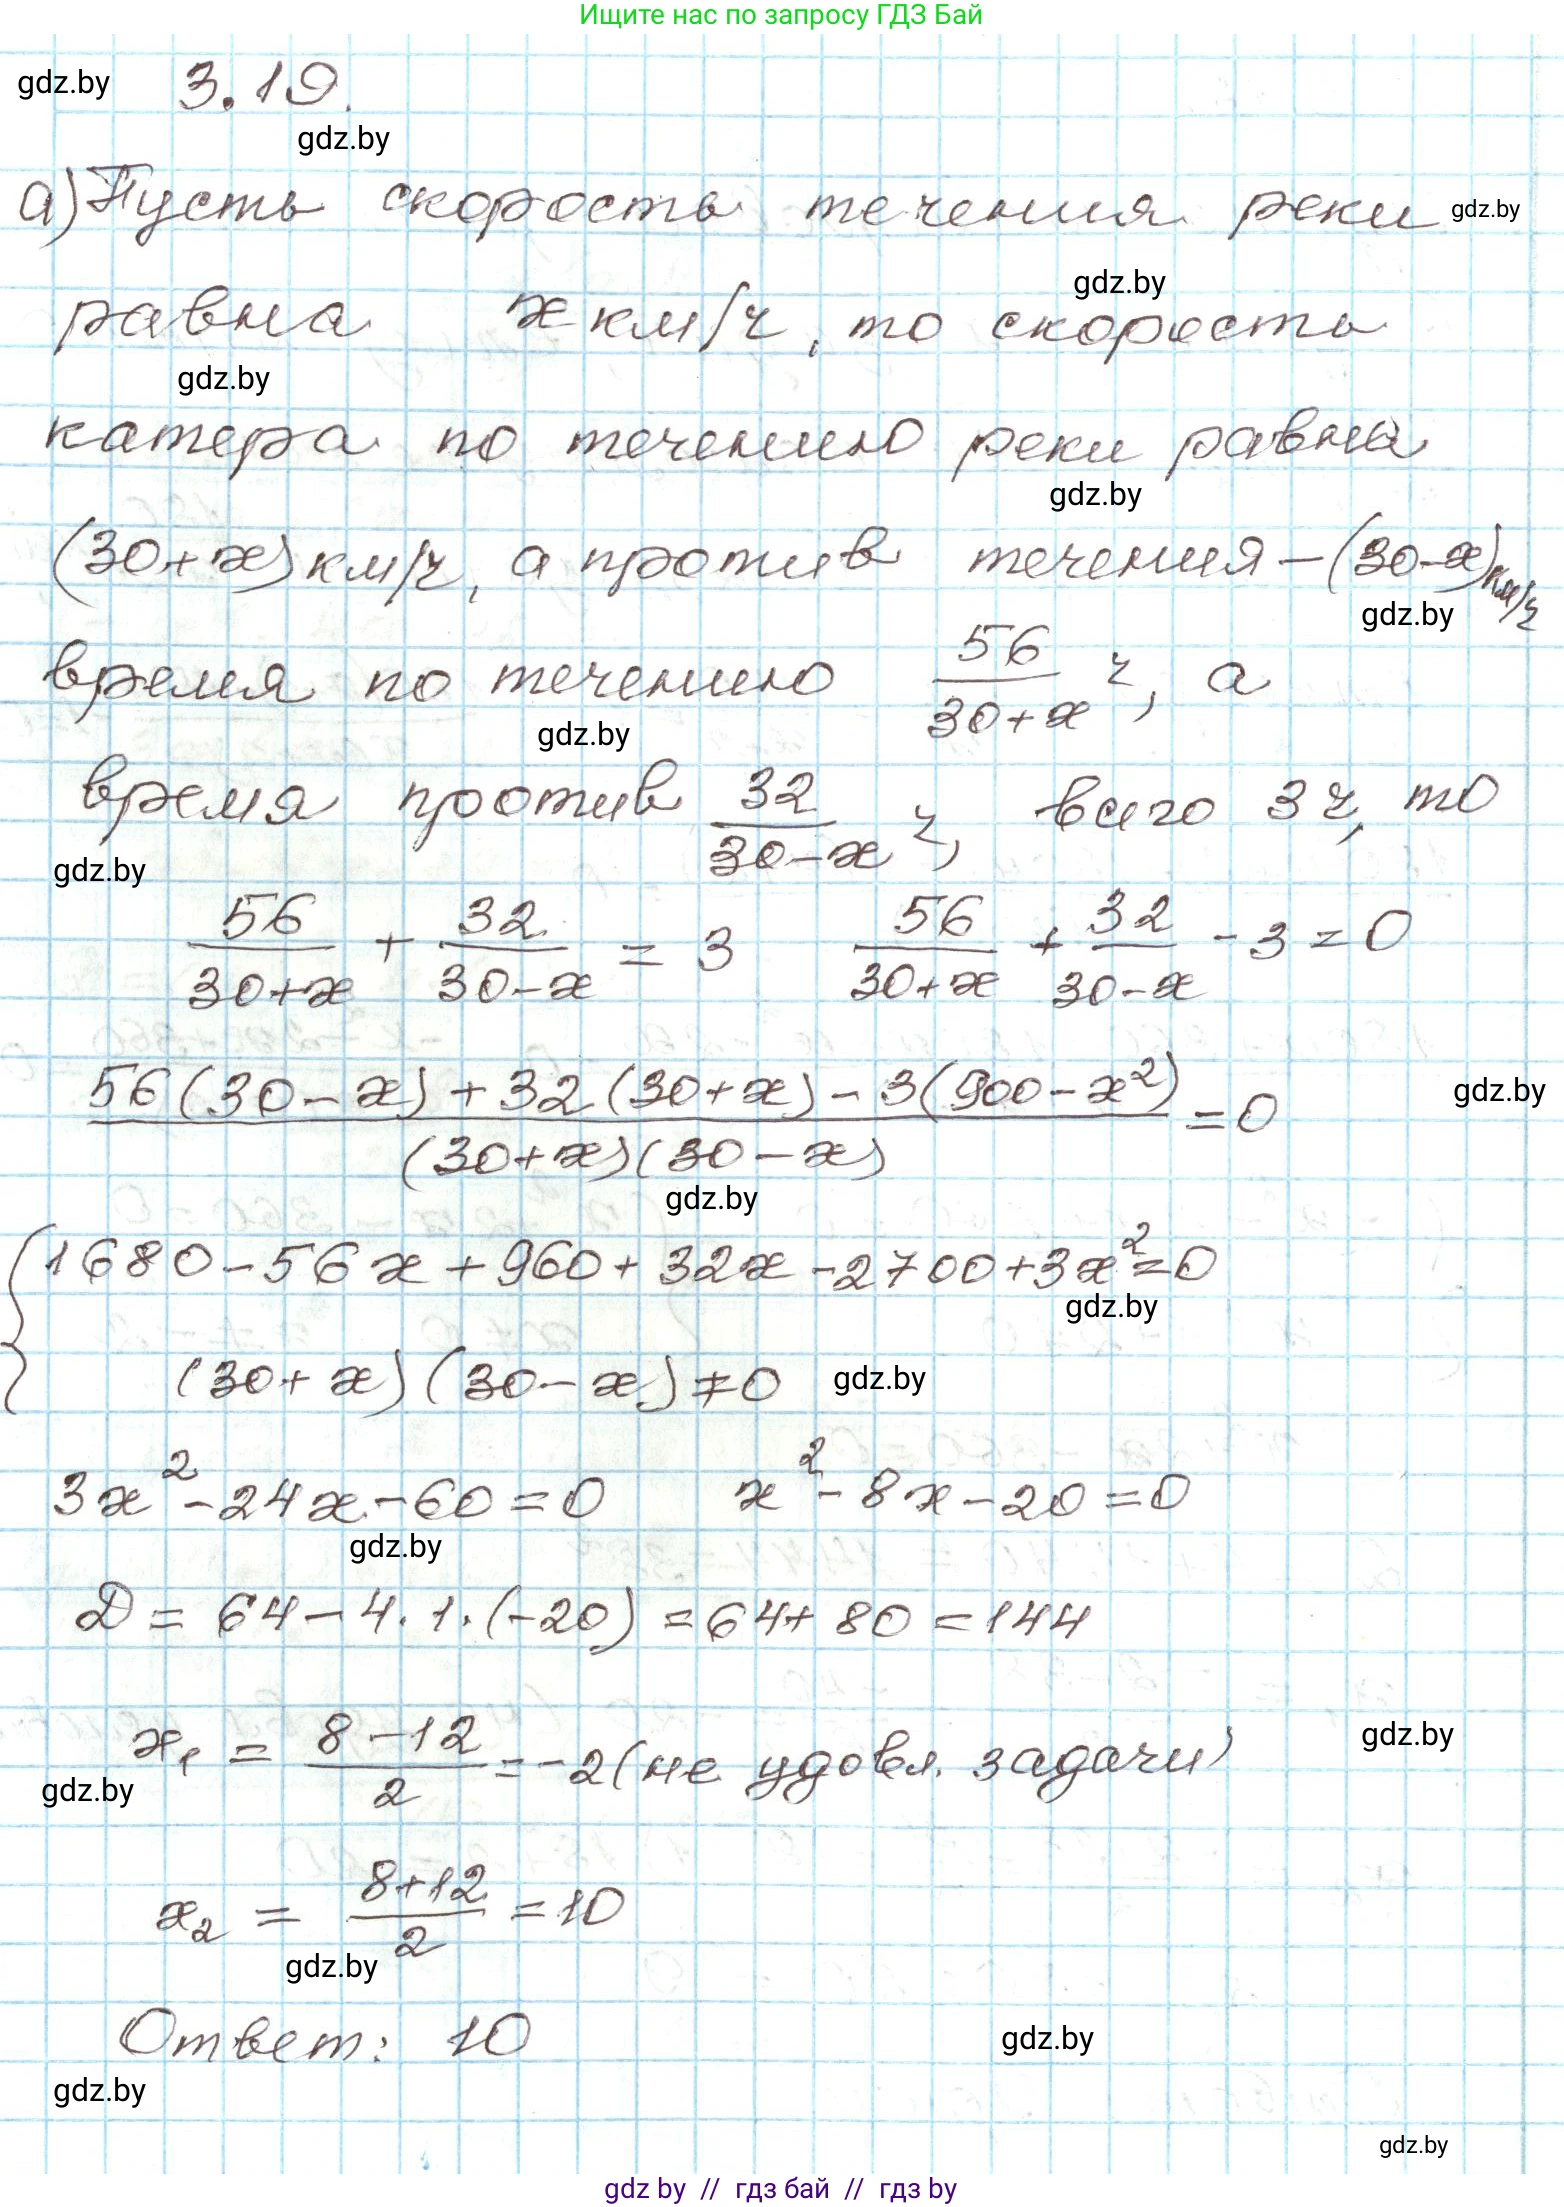 Ищите нас по запросу ГДЗ Бай
gdz.by 3.19.
gdz.by
а) Пусть скорость течения реки gdz.by
gdz.by
равна x км/ч, то скорость
gdz.by
катера по течению реки равна
gdz.by
(30+x) км/ч, а против течения – (30-x) км/ч
gdz.by
время по течению 56/(30+x) ч, а
gdz.by
время против 32/(30-x) ч, всего 3 ч, то
gdz.by
56/(30+x) + 32/(30-x) = 3 56/(30+x) + 32/(30-x) - 3 = 0
(56(30-x) + 32(30+x) - 3(900-x²))/((30+x)(30-x)) = 0 gdz.by
gdz.by
{ 1680 - 56x + 960 + 32x - 2700 + 3x² = 0
gdz.by
(30+x)(30-x) ≠ 0 gdz.by
3x² - 24x - 60 = 0 x² - 8x - 20 = 0
gdz.by
D = 64 - 4·1·(-20) = 64 + 80 = 144
x₁ = (8-12)/2 = -2 (не удовл. задачи) gdz.by
gdz.by
x₂ = (8+12)/2 = 10
gdz.by
Ответ: 10 gdz.by
gdz.by
gdz.by
gdz by // гдз бай // гдз by